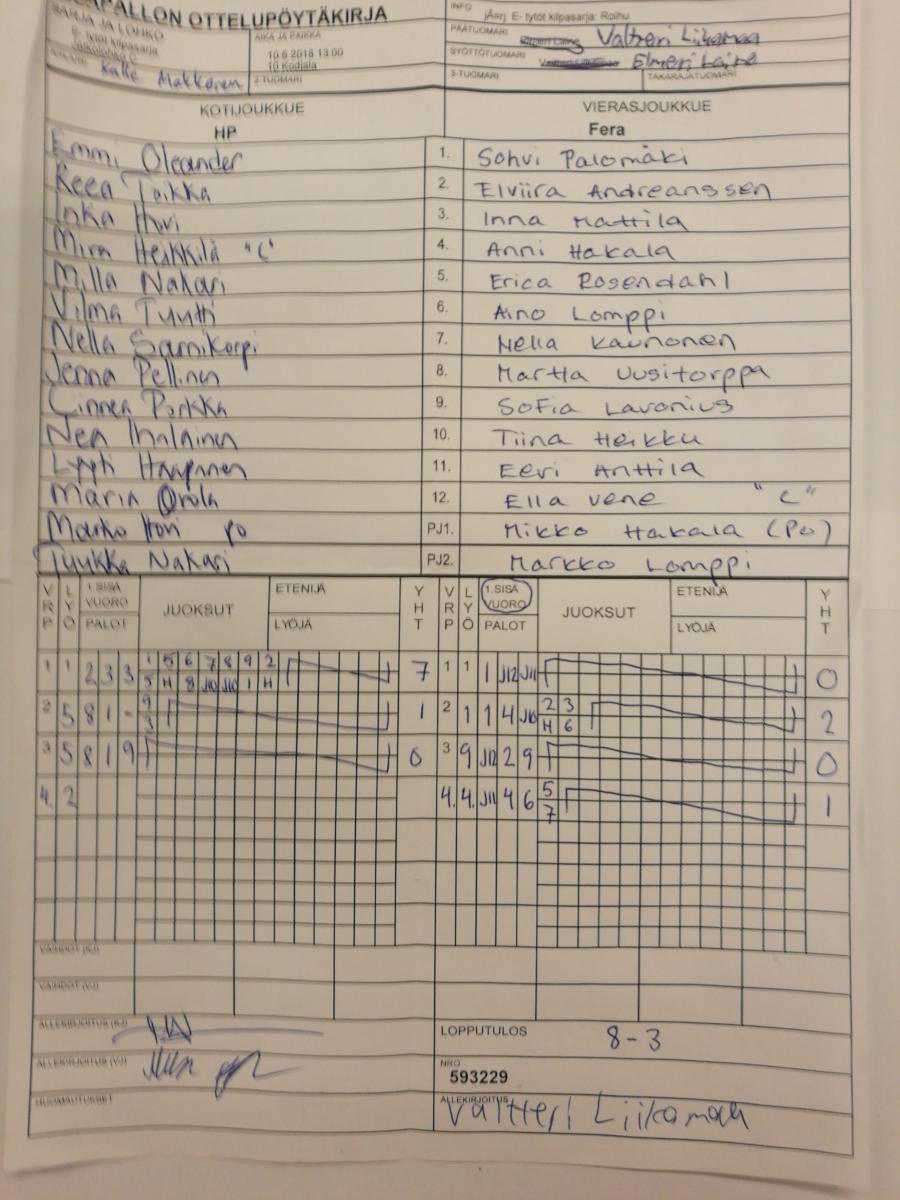 OTTELUPÖYTÄKIRJA
SARJA JA LOHKO
E- tytöt kilpasarja
AIKA JA PAIKKA
10.6.2018 13:00
10 Kodjala
Kalle Makkonen
2-TUOMARI
INFO
jÄrrj. E- tytöt kilpasarja: Roihu
PÄÄTUOMARI
Valtteri Liikamaa
SYÖTTÖTUOMARI
Elmeri Laine
3-TUOMARI
TAKARAJATUOMARI
KOTIJOUKKUE
VIERASJOUKKUE
HP
Fera
Emmi Oleander 1. Sohvi Palomäki
Reea Toikka 2. Elviira Andreanssen
Inka Hovi 3. Inna Mattila
Mira Heikkilä "C" 4. Anni Hakala
Milla Nakari 5. Erica Rosendahl
Vilma Tuutti 6. Aino Lomppi
Nella Sarnikorpi 7. Nella Kaunonen
Jenna Pellinen 8. Martta Uusitorppa
Linnea Porkka 9. Sofia Lavonius
Nea Ihalainen 10. Tiina Heikku
Lyyti Haapanen 11. Eevi Anttila
Maria Orola 12. Ella Vene "C"
Marko Hovi PO PJ1. Mikko Hakala (PO)
Tuukka Nakari PJ2. Markko Lomppi
VRP LYÖ 1.SISÄ VUORO PALOT JUOKSUT ETENIJÄ LYÖJÄ YHT VRP LYÖ 1.SISÄ VUORO PALOT JUOKSUT ETENIJÄ LYÖJÄ YHT
1 1 2 3 3 1 5 6 7 8 9 2 7 1 1 1 J12 J11 0
5 H 8 J10 J10 1 H
2 5 8 1 - 9 1 2 1 1 4 J10 2 3 2
3 H 6
3 5 8 1 9 0 3 9 J12 2 9 0
4. 2 4. 4. J11 4 6 5 1
7
VAIHDOT (KJ)
VAIHDOT (VJ)
ALLEKIRJOITUS (KJ)
LOPPUTULOS 8-3
ALLEKIRJOITUS (VJ)
NRO
593229
HUOMAUTUKSET
ALLEKIRJOITUS
Valtteri Liikamaa